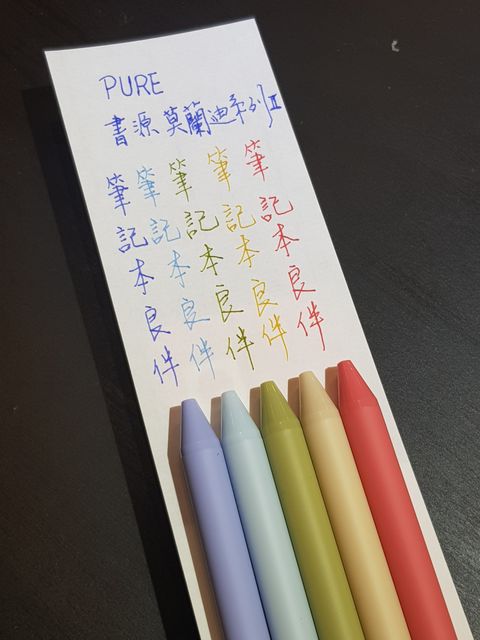 PURE
書源 莫蘭迪系列II
筆記本良伴
筆記本良伴
筆記本良伴
筆記本良伴
筆記本良伴